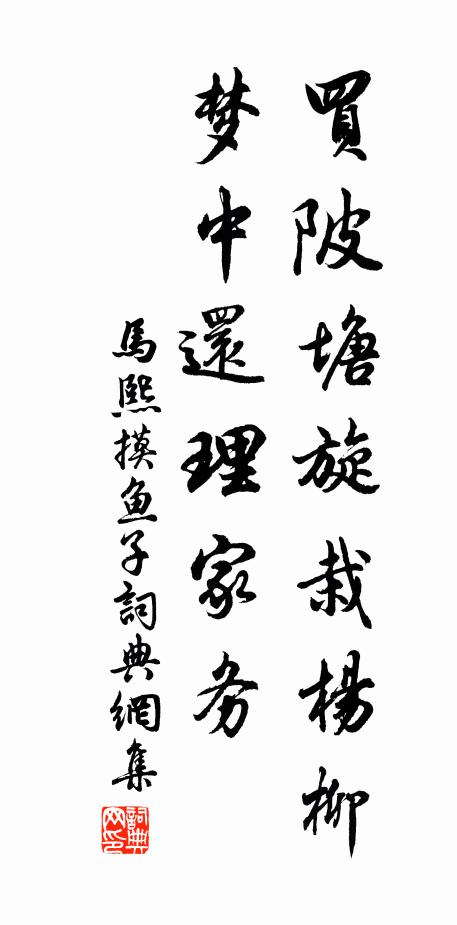 買陂塘旋栽楊柳
梦中還理家务
馬熙摸魚子詞典網集
詞典网印